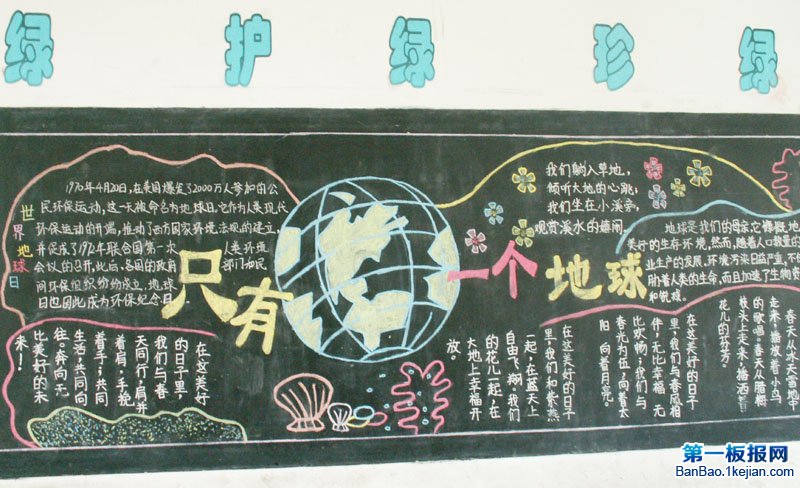 绿护绿珍绿
世界地球日
1970年4月20日,在美国爆发了2000万人参加的公
民环保运动,这一天被命名为地球日,它作为人类现代
环保运动的开端,推动了西方国家环境法规的建立,
并促成了1972年联合国第一次 人类环境
会议的召开,此后,各国的政府 部门和民
间环保组织纷纷成立,地球
日也因此成为环保纪念日.
只有一个地球
我们躺入草地,
倾听大地的心跳;
我们坐在小溪旁,
观赏溪水的嬉闹.
地球是我们的母亲,它慷慨地
美好的生存环境,然而,随着人口数量的
业生产的发展,环境污染日益严重,不
胁着人类的生命,而且加速了生物资
在这美好
的日子里,
我们与春
天同行,肩并
着肩,手挽
着手,共同
生活,共同向
往,奔向无
比美好的未
来!
在这美好的日子
里,我们和紫燕
一起,在蓝天上
自由飞翔,我们
的花儿一起,在
大地上幸福开
放。
春天从冰天雪地中
走来,播放着小鸟
的歌唱,春天从腊梅
枝头上走来,播洒
花儿的芬芳。
在这美好的日子
里,我们与春风相
伴,无比幸福 无
比欢畅;我们与
春光为伍,向着太
阳 向着月亮。
第一板报网
BanBao.1kejian.com